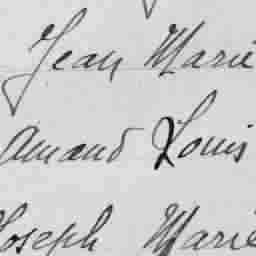 Jean Marie
Amand Louis
Joseph Marie